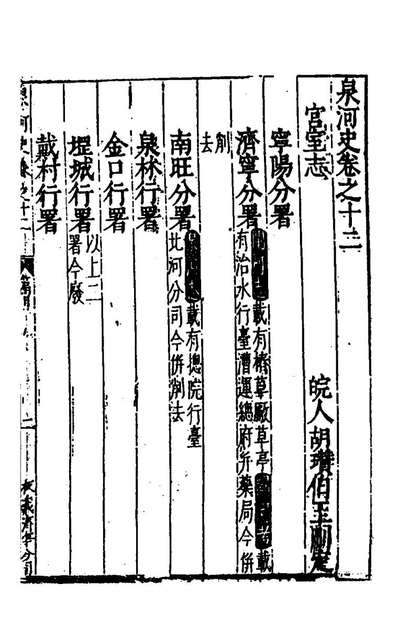 泉河史卷之十二
宮室志　皖人胡瓚伯玉刪定
寧陽分署
濟寧分署
載有椿草廠草亭載
有治水行臺漕運總府并藥局今併
削
去
南旺分署
載有總院行臺
北河分司今併削去
泉林行署
金口行署
堽城行署
以上二
署今廢
戴村行署
泉河史卷之十二